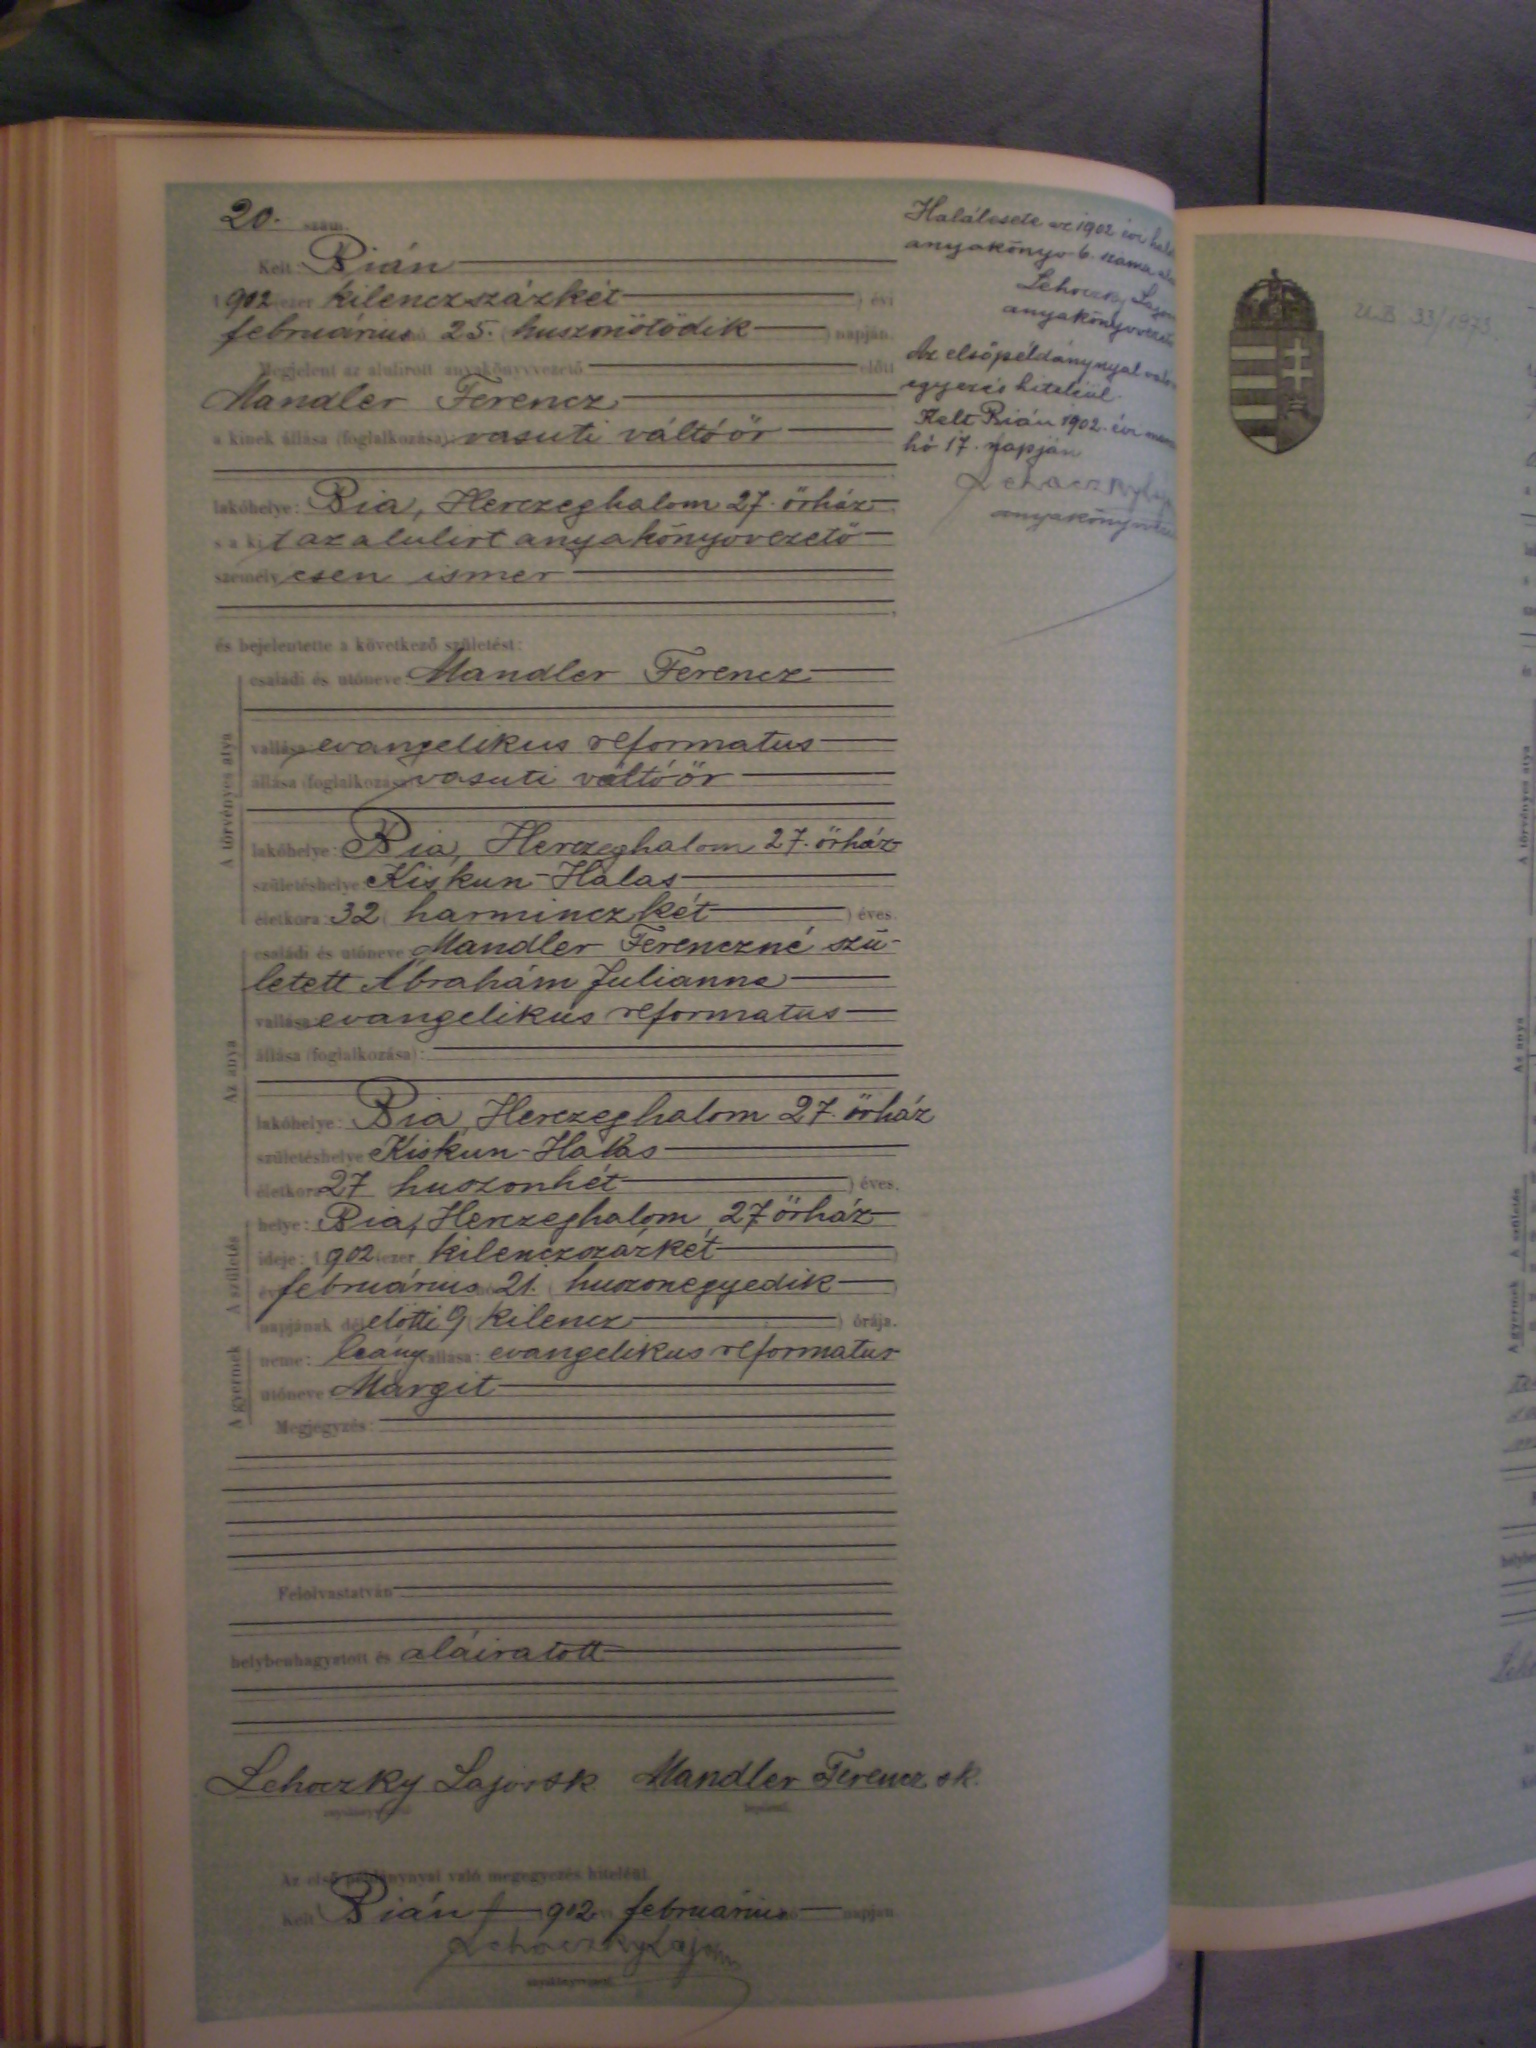 20. szám.
Kelt: Bián
1902 ezer kilenczszázkét ) évi
februárius hó 25. ( huszonötödik ) napján.
Megjelent az alulirott anyakönyvvezető előtt
Mandler Ferencz
a kinek állása (foglalkozása): vasuti váltóőr
lakóhelye: Bia, Herczeghalom 27. őrház
s a kit az alulirt anyakönyvvezető
személyesen ismer
és bejelentette a következő születést:
A törvényes atya
családi és utóneve: Mandler Ferencz
vallása: evangelikus reformatus
állása (foglalkozása): vasuti váltóőr
lakóhelye: Bia, Herczeghalom 27. őrház
születéshelye: Kiskun-Halas
életkora: 32 ( harminczkét ) éves.
Az anya
családi és utóneve: Mandler Ferenczné szü-
letett Ábrahám Julianna
vallása: evangelikus reformatus
állása (foglalkozása):
lakóhelye: Bia, Herczeghalom 27. őrház
születéshelye: Kiskun-Halas
életkora: 27 huszonhét ) éves.
A születés
helye: Bia, Herczeghalom 27 őrház
ideje: 1902 ezer kilenczszázkét
évi februárius hó 21. ( huszonegyedik )
napjának délelőtti 9 ( kilencz ) órája.
A gyermek
neme: leány vallása: evangelikus reformatus
utóneve: Margit
Megjegyzés:
Felolvastatván
helybenhagyatott és aláiratott
Lehoczky Lajos sk. Mandler Ferencz sk.
anyakönyvvezető bejelentő.
Az első példánynyal való megegyezés hiteléül.
Kelt Bián 1902. februárius hó napján
Lehoczky Lajos
anyakönyvvezető
Halálesete az 1902 évi
anyakönyv 6. száma
Lehoczky Lajos
anyakönyvvezető
Az elsőpéldánynyal való
egyezés hiteléül.
Kelt Bián 1902. évi
hó 17. napján
Lehoczky Lajos
anyakönyvvezető
U.B 33/1973.
A törvényes atya
Az anya
A születés
A gyermek